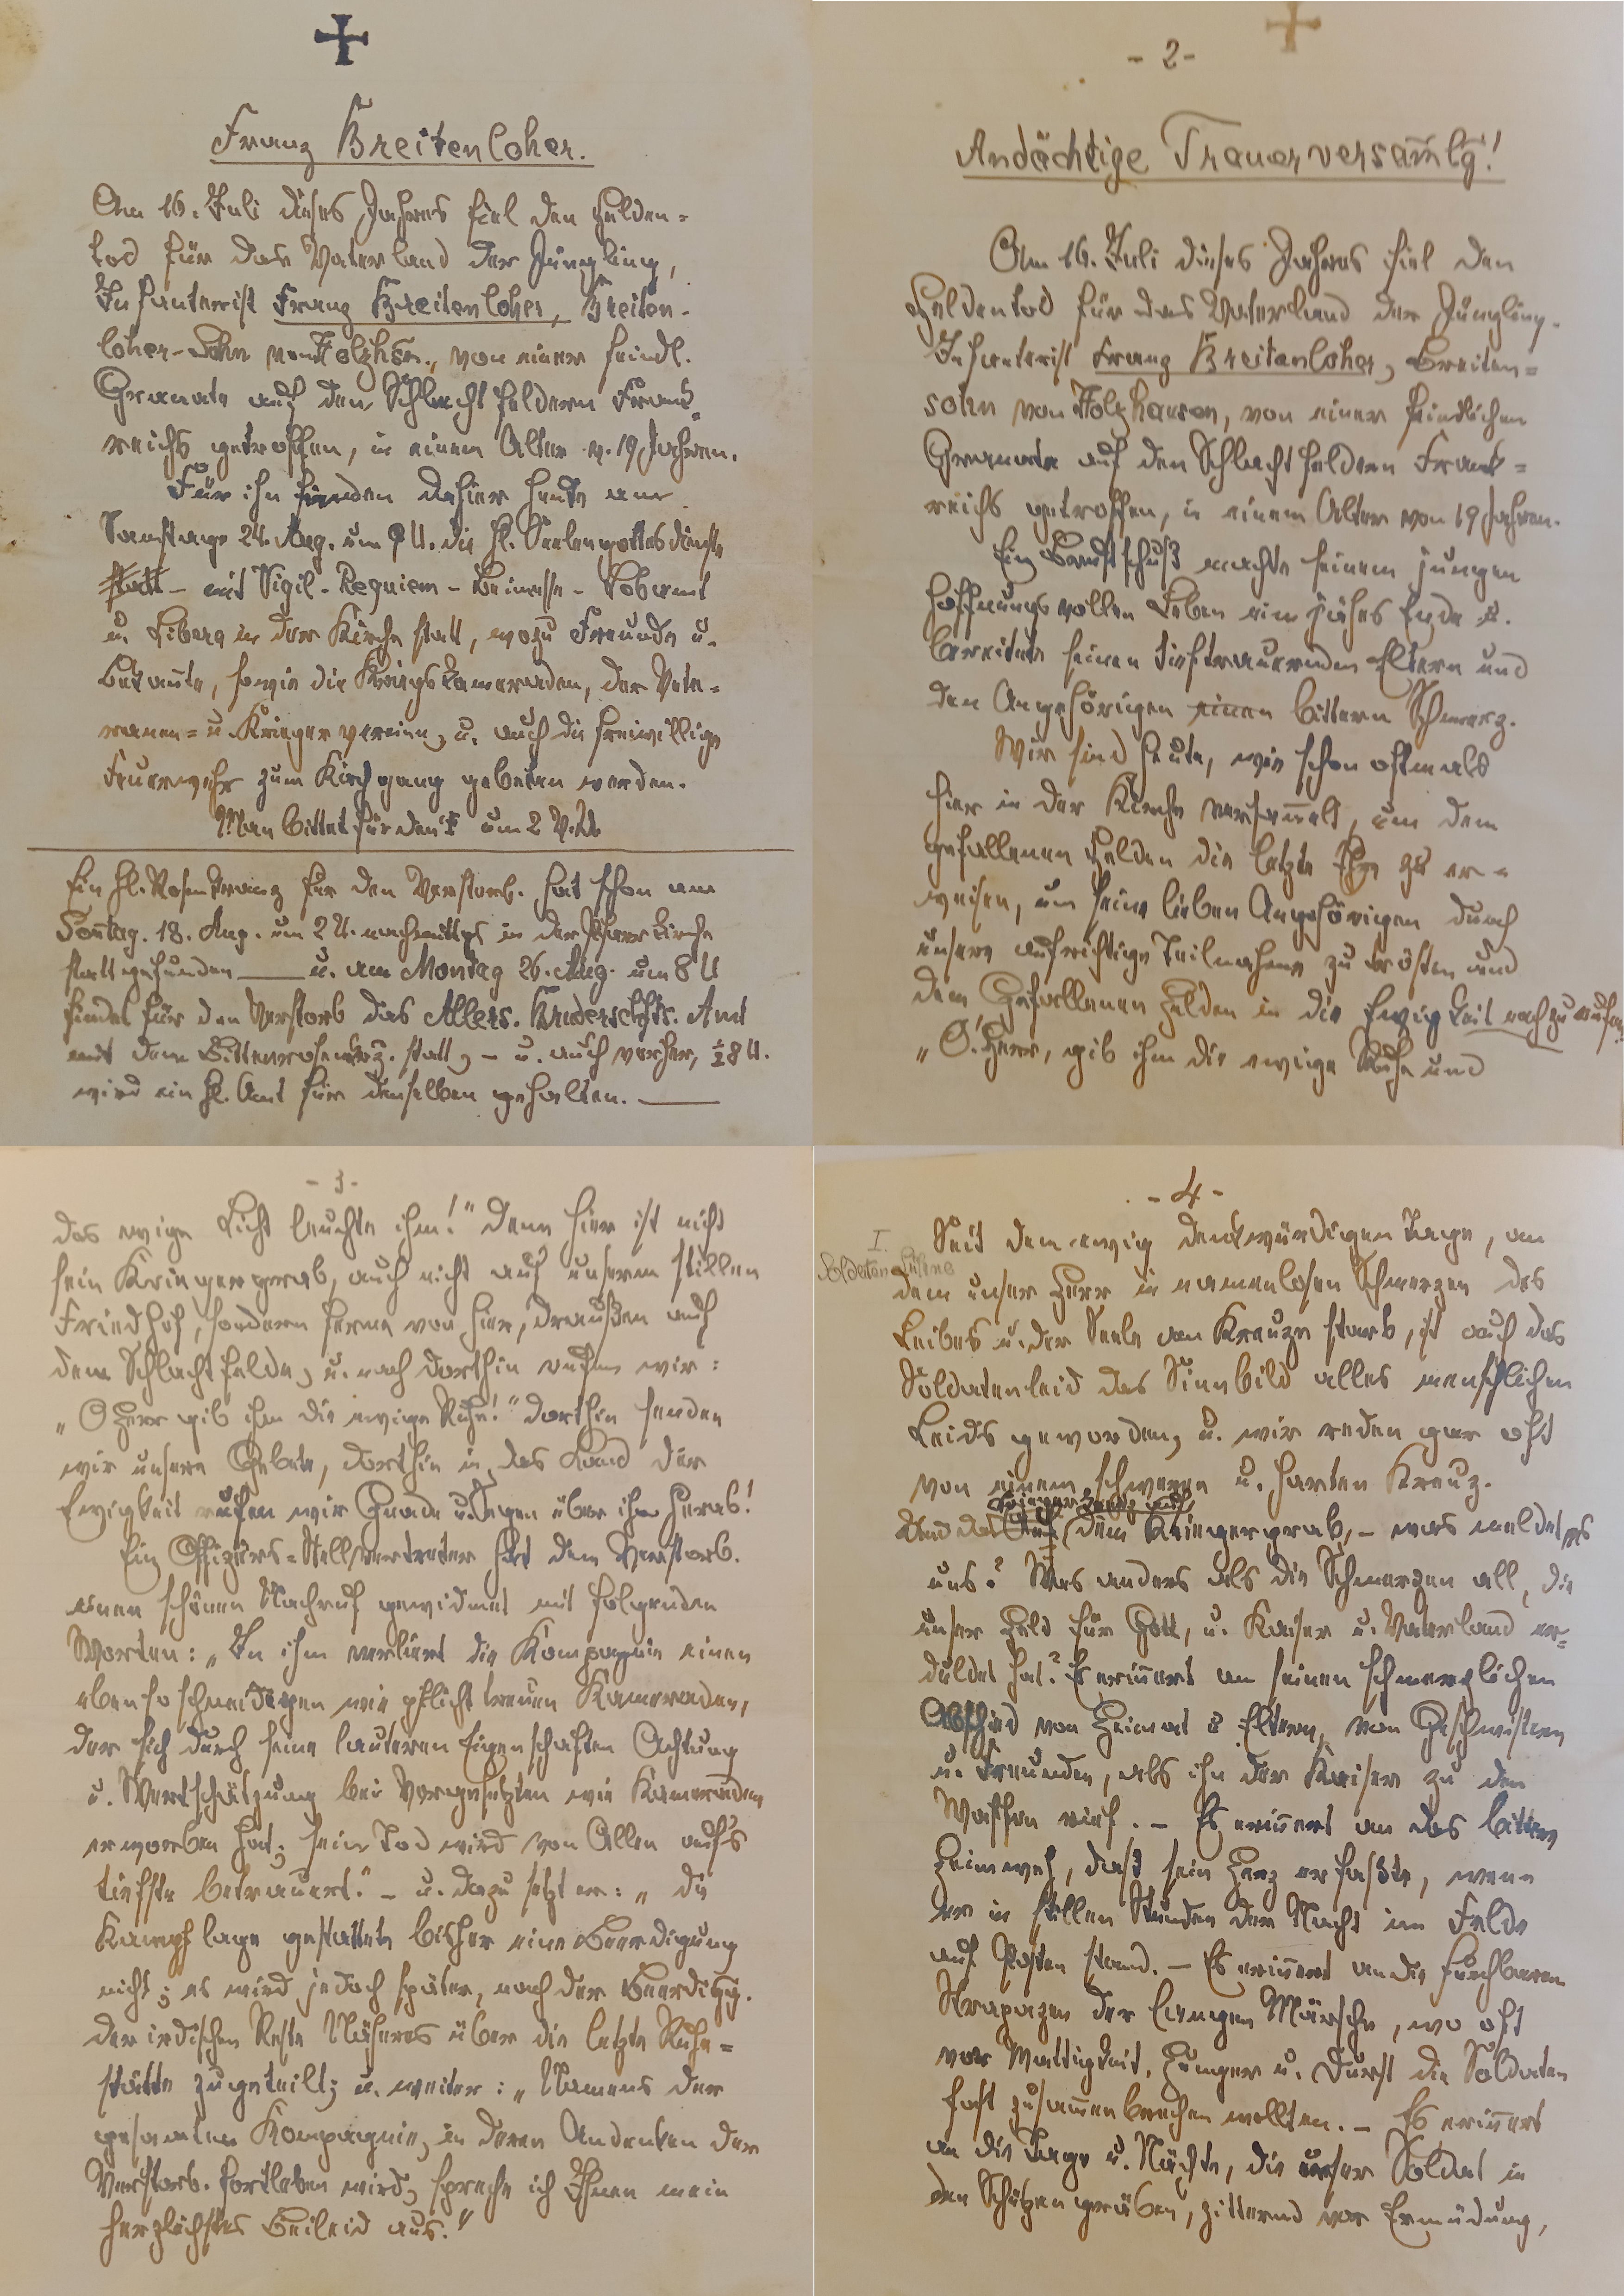 Franz Breitenloher.
Am 16. Juli dieses Jahres fiel den Helden-
tod für das Vaterland der Jüngling,
Infanterist Franz Breitenloher, Breiten-
loher-Sohn von Holzhsn., von einer feindl.
Granate auf den Schlachtfeldern Frank-
reichs getroffen, in einem Alter v. 19 Jahren.
Für ihn finden dahier heute am
Samstage 24. Aug. um 9 U. die hl. Seelengottesdienste
statt - mit Vigil - Requiem - Beimesse - Lobamt
u. Libera in der Kirche statt, wozu Freunde u.
Bekannte, sowie die Kriegskameraden, der Vete-
ranen- u. Kriegerverein, u. auch die freiwillige
Feuerwehr zum Kirchgang gebeten werden.
Man bittet für den † um 2 V.U.
Ein hl. Rosenkranz für den Verstorb. hat schon am
Sonntag. 18. Aug. um 2 U. nachmittgs in der Pfarrkirche
stattgefunden — u. am Montag 26. Aug. um 8 U
findet für den Verstorb das Allers. Bruderschfts. Amt
mit dem Bittenrosenkrz. statt, - u. auch vorher, ½8 U.
wird ein hl. Amt für denselben gehalten. —
- 2 -
Andächtige Trauerversam̅lg!
Am 16. Juli dieses Jahres fiel den
Heldentod für das Vaterland der Jüngling.
Infanterist Franz Breitenloher, Breiten-
sohn von Holzhausen, von einer feindlichen
Granate auf den Schlachtfeldern Frank-
reichs getroffen, in einem Alter von 19 Jahren.
Ein Brustschuß machte seinem jungen
hoffnungsvollen Leben ein jähes Ende u.
bereitete seinen tieftrauernden Eltern und
den Angehörigen einen bittern Schmerz.
Wir sind heute, wie schon oftmals
hier in der Kirche versam̅elt, um dem
gefallenen Helden die letzte Ehre zu er-
weisen, um seine lieben Angehörigen durch
unsere aufrichtige Teilnahme zu trösten und
dem Gefallenen Helden in die Ewigkeit nachzurufen:
„O Herr, gib ihm die ewige Ruhe und
- 3 -
das ewige Licht leuchte ihm!" Denn hier ist nicht
sein Kriegergrab, auch nicht auf unserm stillen
Friedhof, sondern ferne von hier, draußen auf
dem Schlachtfelde, u. nach dorthin rufen wir:
„O Herr gib ihm die ewige Ruhe!" dorthin senden
wir unsere Gebete, dorthin in das Land der
Ewigkeit rufen wir Gnade u. Segen über ihn herab!
Ein Offiziers-Stellvertreter hat dem Verstorb.
einen schönen Nachruf gewidmet mit folgenden
Worten: „In ihm verliert die Kompagnie einen
ebenso schneidigen wie pflichttreuen Kameraden,
der sich durch seine lauteren Eigenschaften Achtung
u. Wertschätzung bei Vorgesetzten wie Kameraden
erworben hat; sein Tod wird von Allen auf's
tiefste betrauert." - u. dazu setzt er: „die
Kampflage gestattete bisher eine Beerdigung
nicht; es wird jedoch später, nach der Beerdigg.
der irdischen Reste Näheres über die letzte Ruhe-
stätte zugeteilt; u. weiter: „Namens der
gesamten Kompagnie, in deren Andenken der
Verstorb. fortleben wird, spreche ich Ihnen mein
herzlichstes Beileid aus."
- 4 -
I.
Soldaten
Seit dem ewig denkwürdigen Tage, an
dem unser Herr in namenlosen Schmerzen des
Leibes u. der Seele am Kreuze starb, ist auch das
Soldatenleid das Sinnbild alles menschlichen
Leids geworden, u. wir reden gar oft
von einem schweren u. harten Kreuz.
Und das Auf dem Kriegergrab, - was meldet es
uns? Was anders als die Schmerzen all, die
unser Held für Gott, u. Kaiser u. Vaterland er-
duldet hat? Es erin̅ert an seinen schmerzlichen
Abschied von Heimat u Eltern, von Geschwistern
u. Freunden, als ihn der Kaiser zu den
Waffen rief. - Es erin̅ert an das bittere
Heimweh, daß sein Herz erfaßte, wenn
er in stillen Stunden der Nacht im Felde
auf Posten stand. - Es erin̅ert an die furchbaren
Strapazen der langen Märsche, wo oft
vor Mattigkeit, Hunger u. Durst die Soldaten
fast zusam̅enbrechen wollten. - Es erin̅ert
an die Tage u. Nächte, die unser Soldat in
den Schützengräben, zitternd vor Ermüdung,